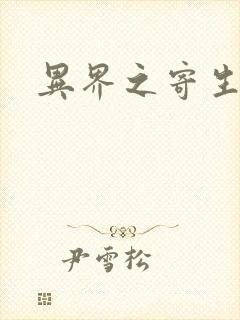 異界之寄生
尹雪松